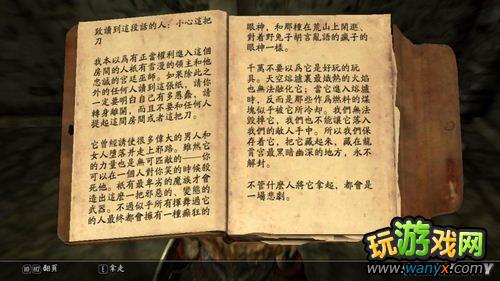 致讀到這段話的人：小心這把
刀
我本以為有正當權利進入這個
房間的人祇有雪漫的領主和他
忠誠的宮廷巫師。如果除此之
外的任何人讀到這張紙，請你
一定要明白自己有多愚蠢，請
轉身離開，而且不要和任何人
提起這間房間或者這把刀。
它曾經誘使很多偉大的男人和
女人墮落并走上邪路。雖然它
的力量也是無可匹敵的——你
可以在一個人對你笑的時候殺
死他。祇有最卑劣的魔族才會
造出這麼一把邪惡的、變態的
武器。不過似乎所有揮舞過它
的人最終都會擁有一種癲狂的
眼神，和那種在荒山上閑逛、
對着野兔子胡言亂語的瘋子的
眼神一樣。
千萬不要以為它是好玩的玩
具。天空熔爐裏最熾熱的火焰
也無法融化它；當它進入熔爐
時，反而是那些作為燃料的煤
塊似乎被它所冷却。我們無法
毀掉它，我們也不能讓它落入
我們的敵人手中。所以我們保
存着它，把它藏起來，藏在龍
霄宮最黑暗幽深的地方，永不
解封。
不管什麽人將它拿起，都會是
一場悲劇。
翻頁
E 拿走
玩游戏网
www.wanyx.com